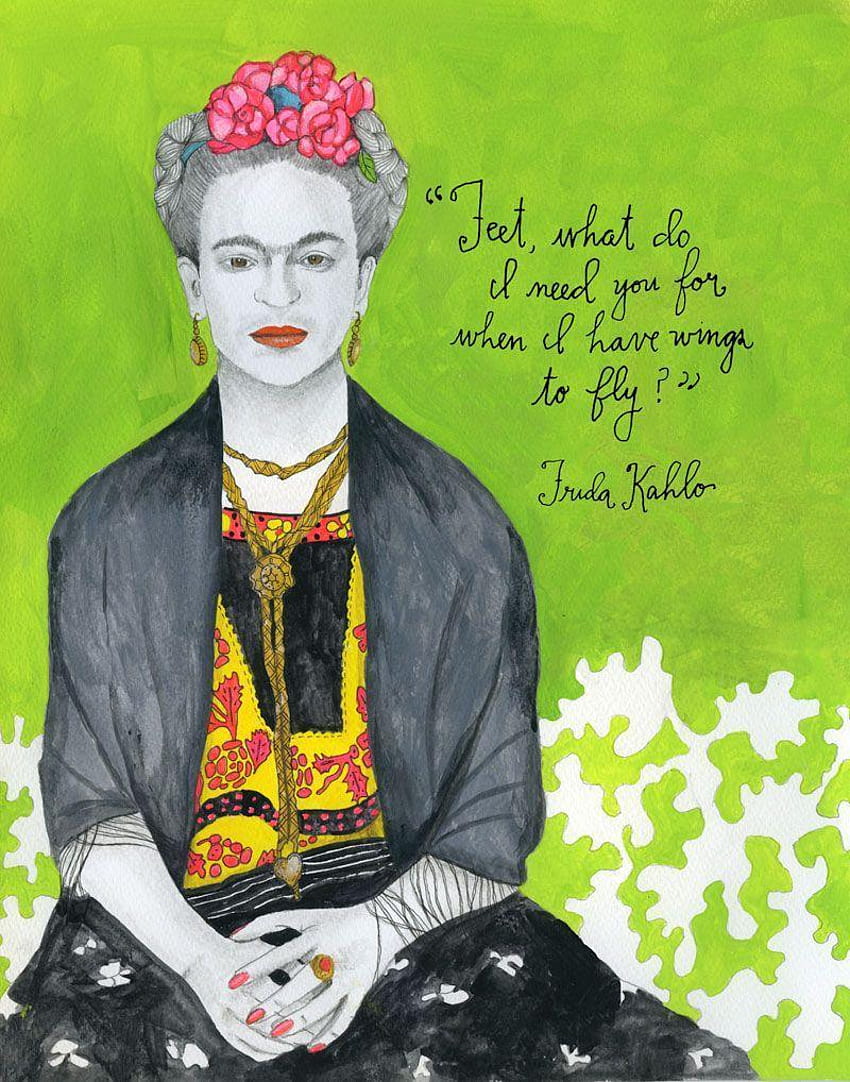 “Feet, what do
I need you for
when I have wings
to fly?”
Frida Kahlo